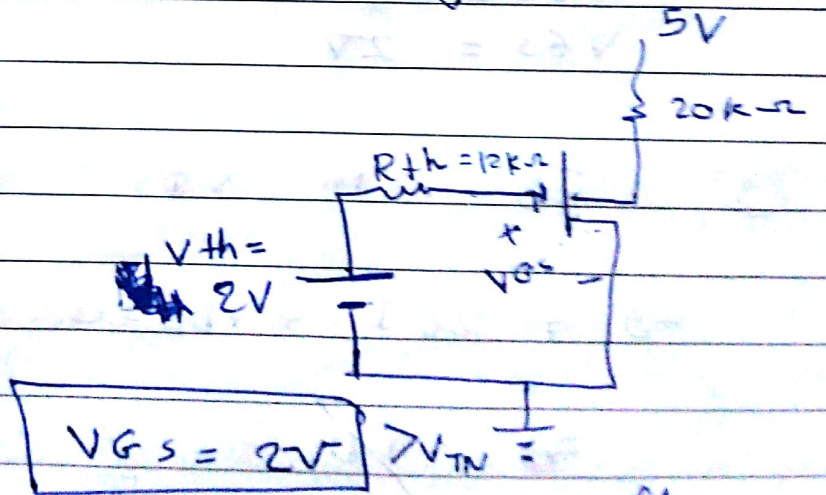 5V
20kΩ
Rth=12kΩ
+
Vth=
2V
VGS -
VGS = 2V >VTN